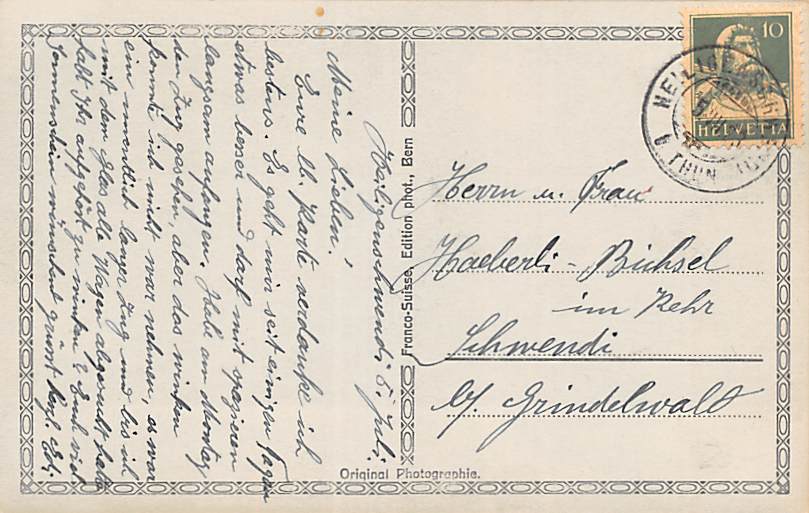 Heiligenschwendi 5. Juli.
Meine Lieben!
Eure lb. Karte verdanke ich
bestens. Es geht mir seit einigen Tagen
etwas besser und darf mit spazieren
langsam anfangen. Habe am Montag
den Zug gesehen, aber das winken
konnte ich nicht war nehmen, es war
ein langer Zug und bis ich
mit dem Glas alle Wagen abgesucht hatte
habt Ihr aufgehört zu winken. Euch viel
Sonnenschein wünschend grüsst herzl. Edi.
Franco-Suisse, Edition phot., Bern
Original Photographie.
10
HELVETIA
HEILIGENSCHWENDI
THUN
Herrn u. Frau
Haeberli-Bichsel
im Kehr
Schwendi
b/ Grindelwald